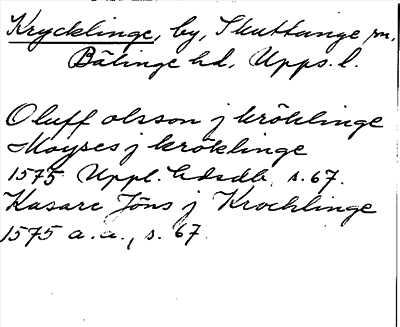 Krycklinge, by, Skuttunge sn,
Bälinge hd, Upps. l.
Oluff olsson j kröklinge
Moyses j kröklinge
1575 Uppl. hdsdb. s. 67.
Kasare Jöns j Krocklinge
1575 a. a., s. 67.